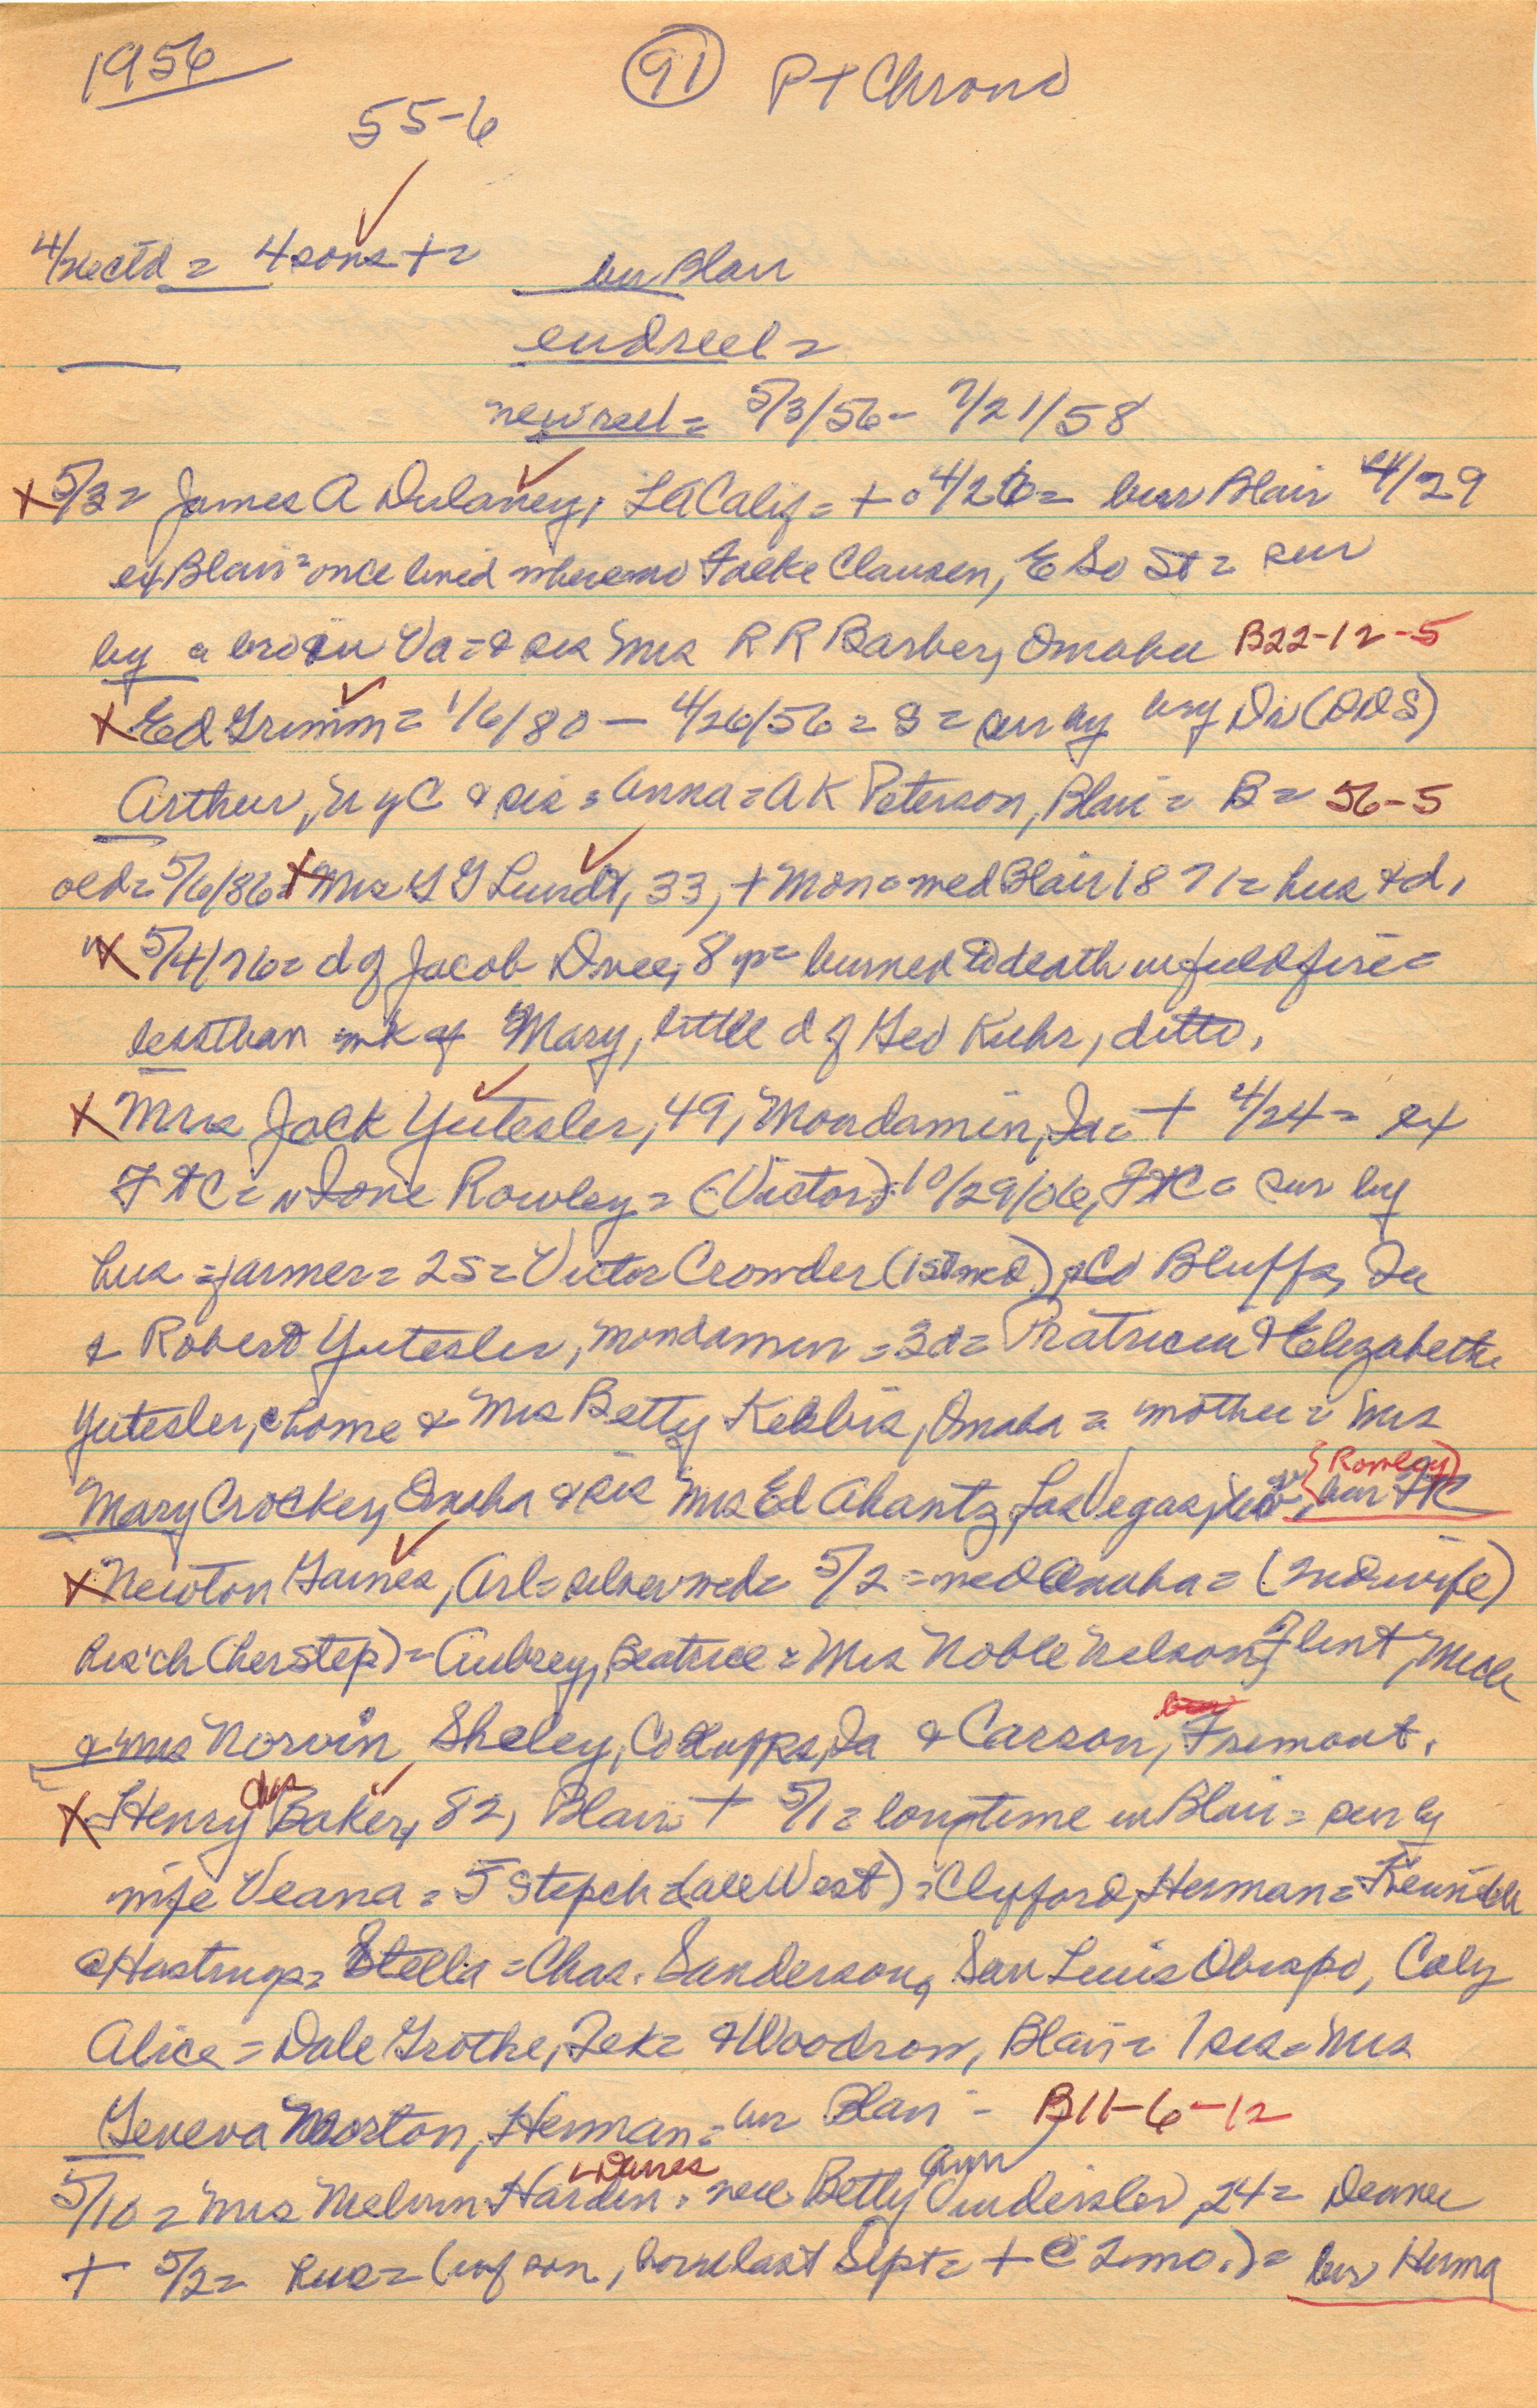 1956 (91) Pt Chrono
55-6
4/26 ctd = 4 sons + = bur Blair
end reel =
new reel = 5/3/56 - 7/21/58
X 5/3 = James A Dulaney, LA Calif = + 4/26 = bur Blair 4/29
ex Blair = once lived where no Clausen, E So St = sur
by a bro in Va = & sis Mrs R R Barber, Omaha B22-12-5
X Ed Grimm = 1/6/80 - 4/26/56 = S = sur by Dr (DDS)
Arthur, N Y C & sis = Anna = A K Peterson, Blair = B = 56-5
old = 5/6/86 = X Mrs G Lundt, 33, + Mon = med Blair 1871 = hus & d,
X 5/4/76 = d of Jacob 8 yr = burned to death in field fire =
less than wk of Mary, little d of Geo Kuhr, ditto,
X Mrs Jack Yutesler, 49, Mondamin, Ia = + 4/24 = ex
Ft C = n Ione Rowley = (Victor) = 10/29/06, Ft C = sur by
hus = farmer = 2s = Victor Crowder (1st med), Co Bluffs, Ia
& Robert Yutesler, Mondamin = 3d = Patricia & Elizabeth
Yutesler, @ home & Mrs Betty Kebbis, Omaha = mother = Mrs
Mary Crocker, Omaha & sis Mrs Ed Ahantz, Las Vegas, (Rowley) bur Ft C
X Newton Gaines, Arl = 5/2 = med Omaha = (2nd wife)
his ch (her step) = Aubrey, Beatrice = Mrs Noble Nelson, Flint, Mich
& Mrs Norvin Sheley, Co Bluffs, Ia & Carson, Fremont.
X Henry Chas Baker, 82, Blair + 5/1 = longtime in Blair = sur by
wife Veana = 5 stepch = (all West) = Clifford, Herman = Kenneth
@ Hastings = Stella = Chas. Sanderson, San Luis Obispo, Calif
Alice = Dale Grothe, Tek = & Woodrow, Blair = 1 sis = Mrs
Geneva Morton, Herman = bur Blair - B11-6-12
5/10 = Mrs Melvin Harden = nee Betty Ann 24 = Denver
+ 5/2 = hus = (inf son, born last Sept = + @ 2 mo.) = bur Herma